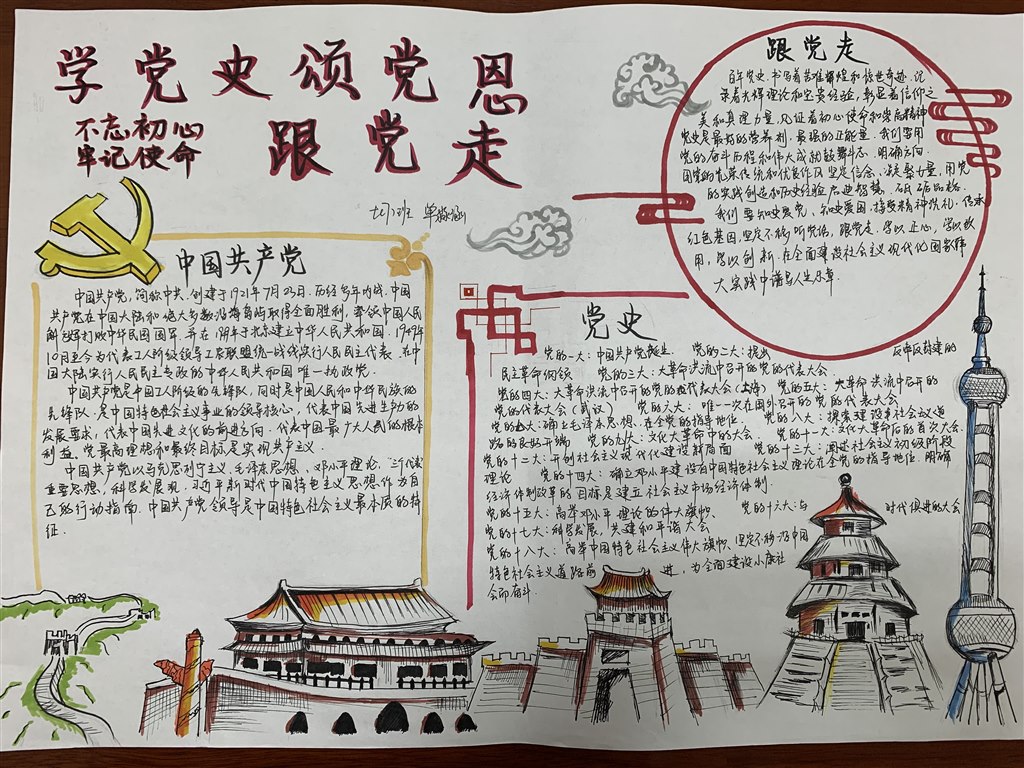 学党史颂党恩
跟党走
不忘初心
牢记使命
七(1)班
中国共产党
中国共产党,简称中共,创建于1921年7月23日.历经多年内战,中国
共产党在中国大陆和绝大多数沿海岛屿取得全面胜利,带领中国人民
解放军打败中华民国国军,并在1949年于北京建立中华人民共和国.1949年
10月至今为代表工人阶级领导工农联盟统一战线实行人民民主代表,在中
国大陆实行人民民主专政的中华人民共和国唯一执政党.
中国共产党是中国工人阶级的先锋队,同时是中国人民和中华民族的
先锋队.是中国特色社会主义事业的领导核心,代表中国先进生产力的
发展要求,代表中国先进文化的前进方向.代表中国最广大人民的根本
利益.党最高理想和最终目标是实现共产主义.
中国共产党以马克思列宁主义,毛泽东思想、邓小平理论,"三个代表"
重要思想,科学发展观,习近平新时代中国特色主义思想作为自
己的行动指南.中国共产党领导是中国特色社会主义最本质的特
征.
跟党走
百年党史,书写着苦难辉煌和惊世奇迹,记
录着光辉理论和宝贵经验,彰显着信仰之
美和真理力量,见证着初心使命和崇高精神
党史是最好的营养剂,最强的正能量.我们要用
党的奋斗历程和伟大成就鼓舞斗志,明确方向.
用党的光荣传统和优良作风坚定信念,凝聚力量,用党
的实践创造和历史经验启迪智慧,砥砺品格.
我们要知史爱党,知史爱国,接受精神洗礼,传承
红色基因,坚定不移听党话,跟党走.学以正心,学以致
用,学以创新,在全面建设社会主义现代化国家伟
大实践中谱写人生乐章
党史
党的一大:中国共产党诞生. 党的二大:提出 反帝反封建的
民主革命纲领 党的三大:大革命洪流中召开的党的代表大会
党的四大:大革命洪流中召开的党的代表大会(上海) 党的五大:大革命洪流中召开的
党的代表大会(武汉) 党的六大:唯一一次在国外召开的党的代表大会
党的七大:确立毛泽东思想,在全党的指导地位. 党的八大:探索建设社会主义道
路的良好开端 党的九大:文化大革命中的大会 党的十一大:文化大革命后的首次大会.
党的十二大:开创社会主义现代化建设新局面 党的十三大:阐述社会主义初级阶段
理论 党的十四大:确立邓小平建设有中国特色社会主义理论在全党的指导地位.明确
经济体制改革的目标是建立社会主义市场经济体制.
党的十五大:高举邓小平理论的伟大旗帜. 党的十六大:与 时代俱进的大会
党的十七大:科学发展,共建和平谐大会
党的十八大:高举中国特色社会主义伟大旗帜,坚定不移沿中国
特色社会主义道路前 进,为全面建设小康社
会而奋斗.